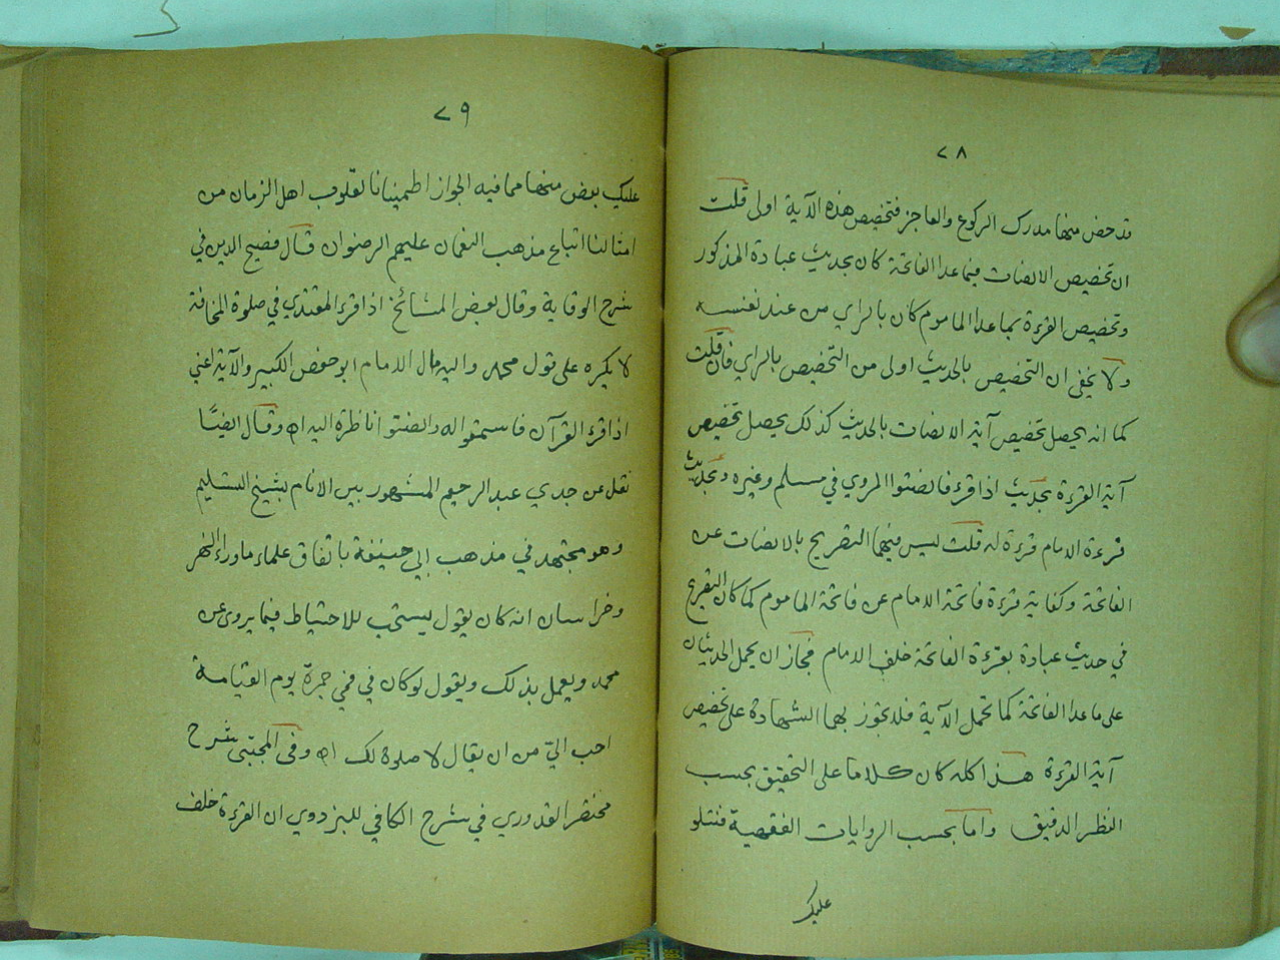 ٧٨
قد حض منها مدرك الركوع والعاجز فتخصيص هذه الآية اولى قلت
ان تخصيص الانصات فيما عدا الفاتحة كان بحديث عبادة المذكور
وتخصيص القرءة بما عدا الماموم كان بالراي من عند نفسه
ولا يخفى ان التخصيص بالحديث اولى من التخصيص بالراي فان قلت
كما انه يحصل تخصيص آية الانصات بالحديث كذلك يحصل تخصيص
آية القرءة بحديث اذا قرء فانصتوا المروي في مسلم وغيره وبحديث
قرءة الامام قرءة له قلت ليس فيهما التصريح بالانصات عن
الفاتحة وكفاية قرءة فاتحة الامام عن فاتحة الماموم كما كان التصريح
في حديث عبادة بقرءة الفاتحة خلف الامام فجاز ان يحمل الحديثان
على ما عدا الفاتحة كما تحمل الآية فلا يجوز بهما الشهادة على تخصيص
آية القرءة هذا كله كان كلاما على التحقيق بحسب
النظر الدقيق واما بحسب الروايات الفقهية فنتلو
عليك
٧٩
عليك بعض منها مما فيه الجواز اطمينانا لقلوب اهل الزمان من
امثالنا اتباع مذهب النعمان عليهم الرضوان قال فصيح الدين في
شرح الوقاية وقال بعض المشائخ اذا قرء المقتدي في صلوة المخافة
لا يكره على قول محمد واليه مال الامام ابو حفص الكبير والآية اعني
اذا قرء القرآن فاستمعوا له وانصتوا ناظرة اليه اه وقال ايضًا
نقل عن جدي عبد الرحيم المشهور بين الانام بشيخ التسليم
وهو مجتهد في مذهب ابي حنيفة باتفاق علماء ماوراء النهر
وخراسان انه كان يقول يستحب للاحتياط فيما يروى عن
محمد ويعمل بذلك ويقول لو كان في فمي جمرة يوم القيامة
احب اليّ من ان يقال لا صلوة لك اه وفى المجتبى شرح
مختصر القدوري في شرح الكافي للبزدوي ان القرءة خلف